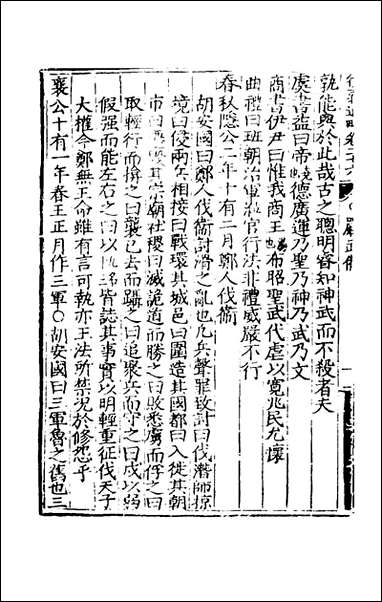 孰能與於此哉古之聰明睿知神武而不殺者夫
虞書益曰帝德廣運乃聖乃神乃武乃文
商書伊尹曰惟我商王布昭聖武代虐以寬兆民允懷
曲禮曰班朝治軍涖官行法非禮威嚴不行
春秋隱公二年十有二月鄭人伐衞
胡安國曰鄭人伐衞討滑之亂也凡兵聲罪致討曰伐潛師掠
境曰侵兩兵相接曰戰環其城邑曰圍造其國都曰入徙其朝
市曰遷毀其宗廟社稷曰滅詭道而勝之曰敗悉虜而俘之曰
取輕行而掩之曰襲已去而躡之曰追聚兵而守之曰戍以弱
假强而能左右之曰以皆誌其事實以明輕重征伐天子
大權今鄭無王命雖有言可執亦王法所禁况於修怨乎
襄公十有一年春王正月作三軍〇胡安國曰三軍魯之舊也三